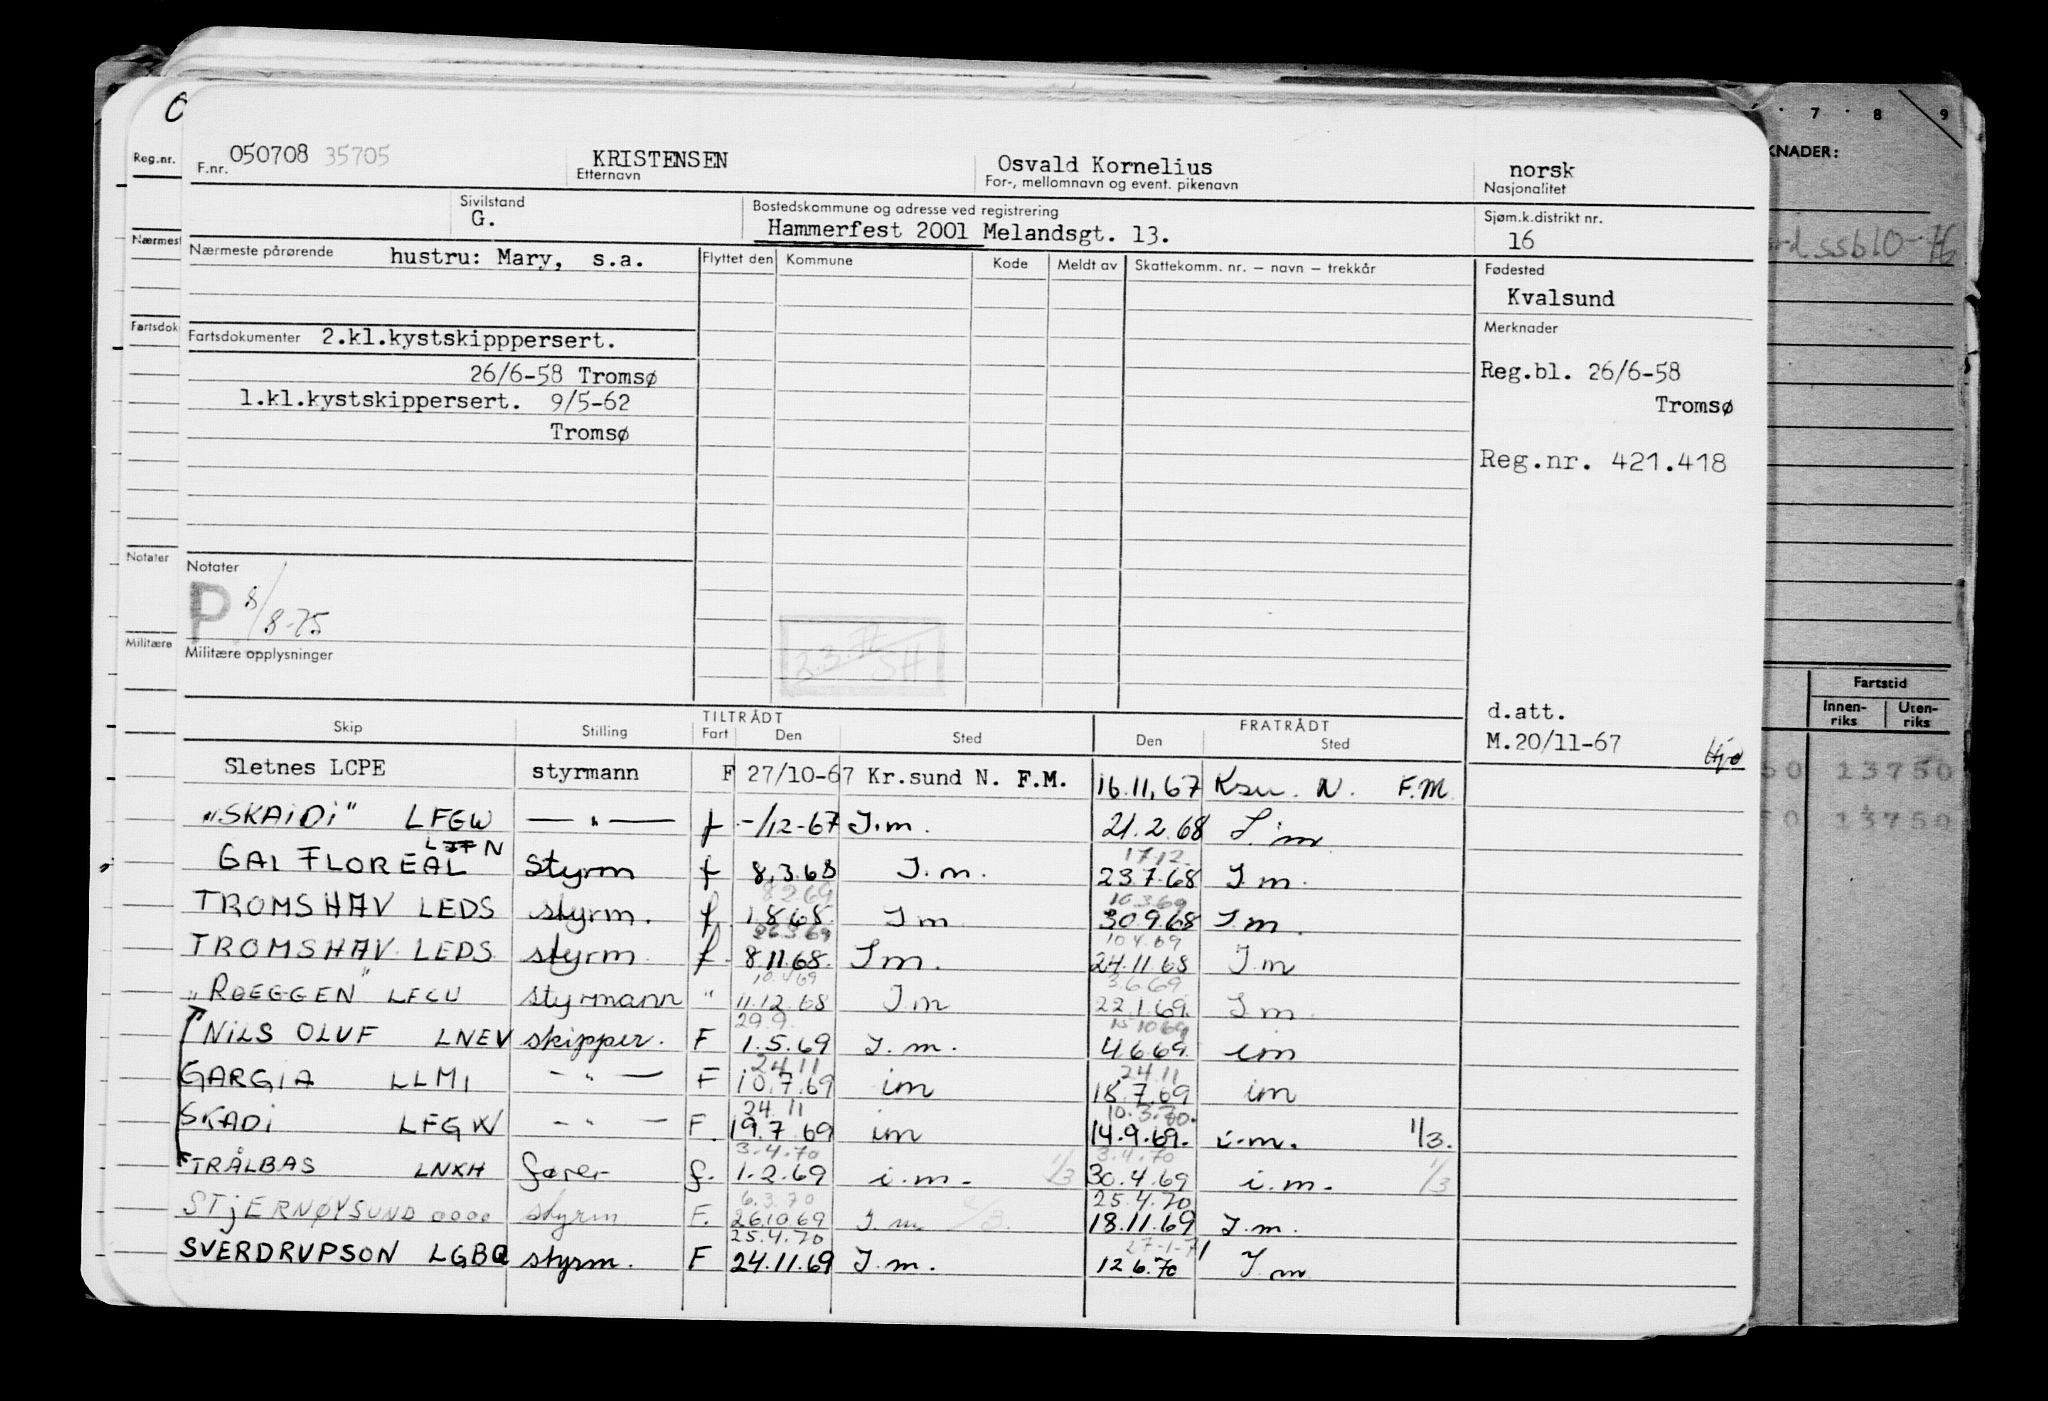 F.nr. 050708 35705 KRISTENSEN Osvald Kornelius norsk
Etternavn For-, mellomnavn og event. pikenavn Nasjonalitet
Sivilstand Bostedskommune og adresse ved registrering Sjøm.k.distrikt nr.
G. Hammerfest 2001 Melandsgt. 13. 16
Nærmeste pårørende hustru: Mary, s.a. Flyttet den Kommune Kode Meldt av Skattekomm. nr. – navn – trekkår Fødested
Kvalsund
Fartsdokumenter 2.kl.kystskipppersert. Merknader
26/6-58 Tromsø Reg.bl. 26/6-58
1.kl.kystskippersert. 9/5-62 Tromsø
Tromsø
Reg.nr. 421.418
Notater
P 8/8-75
Militære opplysninger
d.att.
M.20/11-67
TILTRÅDT FRATRÅDT
Skip Stilling Fart Den Sted Den Sted
Sletnes LCPE styrmann F 27/10-67 Kr.sund N. F.M. 16.11.67 Ksu. N. F.M.
"SKAIDI" LFGW — " — f -/12-67 I.m. 21.2.68 I.m
17.12.
GAI FLOREAL N styrm f 8.3.68 I.m. 23.7.68 I.m.
8.2.69 10.3.69
TROMSHAV LEDS styrm. f 1.8.68. I m 30.9.68 I.m.
26.3.69 10.4.69
TROMSHAV. LEDS styrm. f. 8.11.68. I m. 24.11.68 I.m
10.4.69 3.6.69
"ROEGGEN" LFCU styrmann " 11.12.68 I.m 22.1.69. I.m
29.9. 15.10.69
NILS OLUF LNEV skipper. F 1.5.69 I.m. 4.6.69. im
24.11 24.11
GARGIA LLMI — " — F 10.7.69 im 18.7.69 im
24.11 10.3.70.
SKADI LFGW — " — F. 19.7.69 im 14.9.69. i.m. 1/3.
3.4.70 3.4.70
TRÅLBAS LNXH fører f. 1.2.69 i.m. 1/3 30.4.69 i.m. 1/3
6.3.70 25.4.70
STJERNØYSUND 0000 styrm F. 26.10.69 I.m 18.11.69 I.m.
25.4.70 27-1-71
SVERDRUPSON LGBQ styrm. F 24.11.69 I.m. 12.6.70 I.m
Reg.nr.
Nærmest
Fartsdok
Notater
Militære
7 8 9
KNADER:
Fartstid
Innen-riks Uten-riks
13750
13750